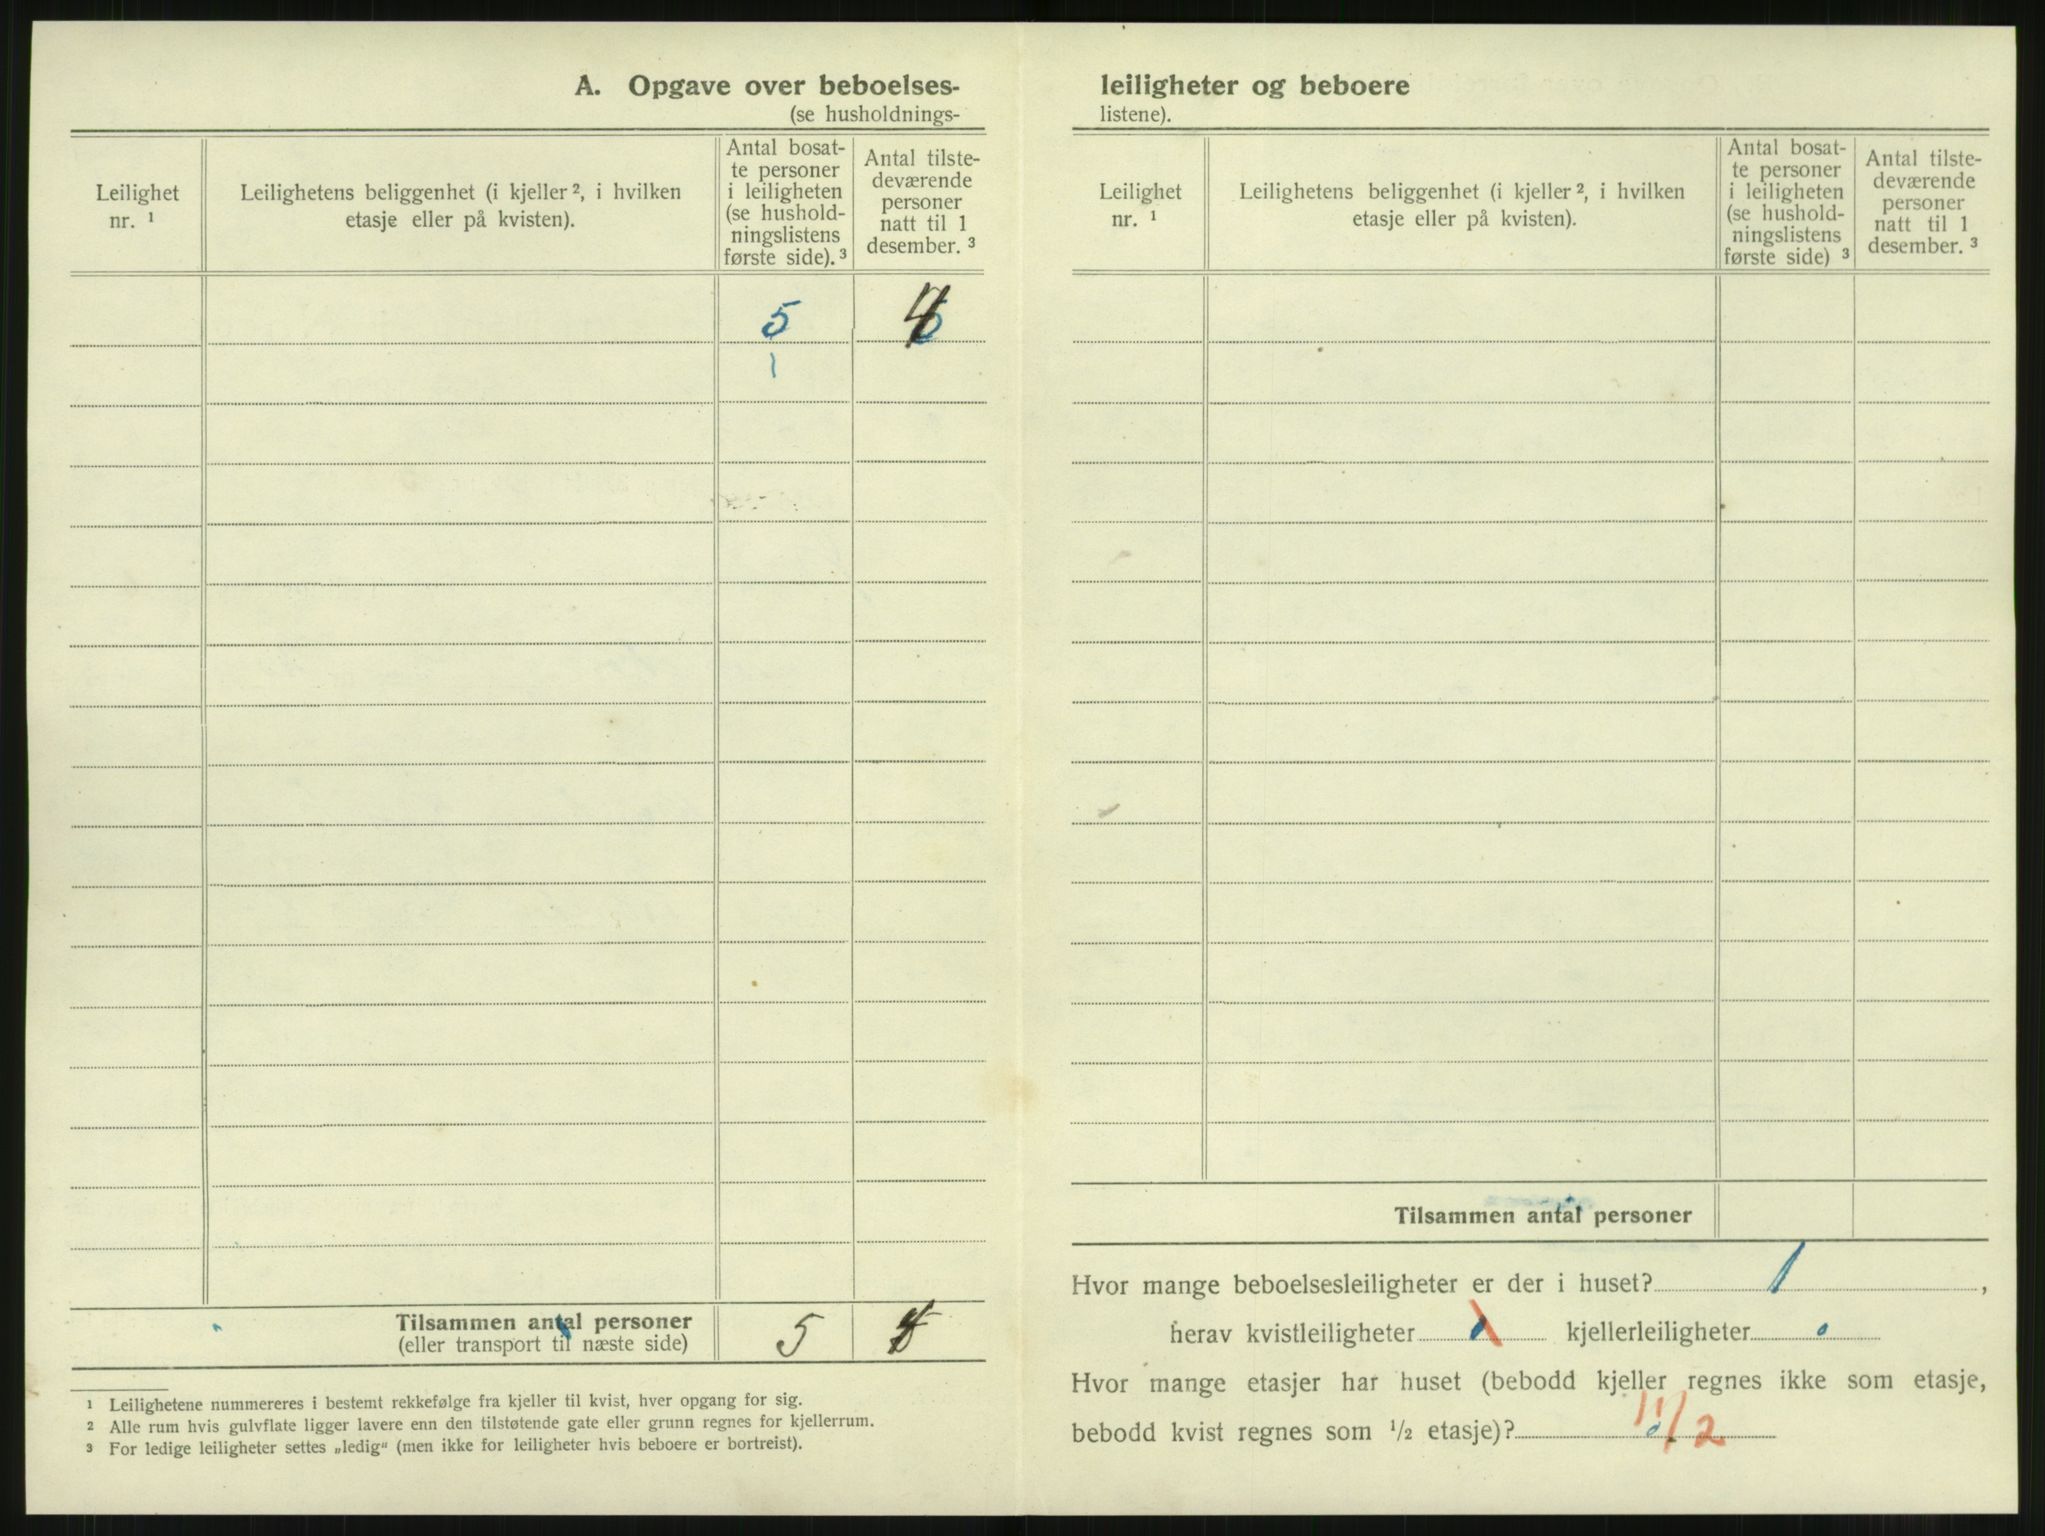 A. Opgave over beboelses-
(se husholdnings-
Leilighet
nr. ¹
Leilighetens beliggenhet (i kjeller ², i hvilken
etasje eller på kvisten).
Antal bosat-
te personer
i leiligheten
(se hushold-
ningslistens
første side). ³
Antal tilste-
deværende
personer
natt til 1
desember. ³
5 4
1
Tilsammen antal personer
(eller transport til næste side)
5
¹ Leilighetene nummereres i bestemt rekkefølge fra kjeller til kvist, hver opgang for sig.
² Alle rum hvis gulvflate ligger lavere enn den tilstøtende gate eller grunn regnes for kjellerrum.
³ For ledige leiligheter settes „ledig“ (men ikke for leiligheter hvis beboere er bortreist).
leiligheter og beboere
listene).
Leilighet
nr. ¹
Leilighetens beliggenhet (i kjeller ², i hvilken
etasje eller på kvisten).
Antal bosat-
te personer
i leiligheten
(se hushold-
ningslistens
første side) ³
Antal tilste-
deværende
personer
natt til 1
desember. ³
Tilsammen antal personer
Hvor mange beboelsesleiligheter er der i huset? 1 ,
herav kvistleiligheter kjellerleiligheter 0
Hvor mange etasjer har huset (bebodd kjeller regnes ikke som etasje,
bebodd kvist regnes som ½ etasje)? 1 1/2